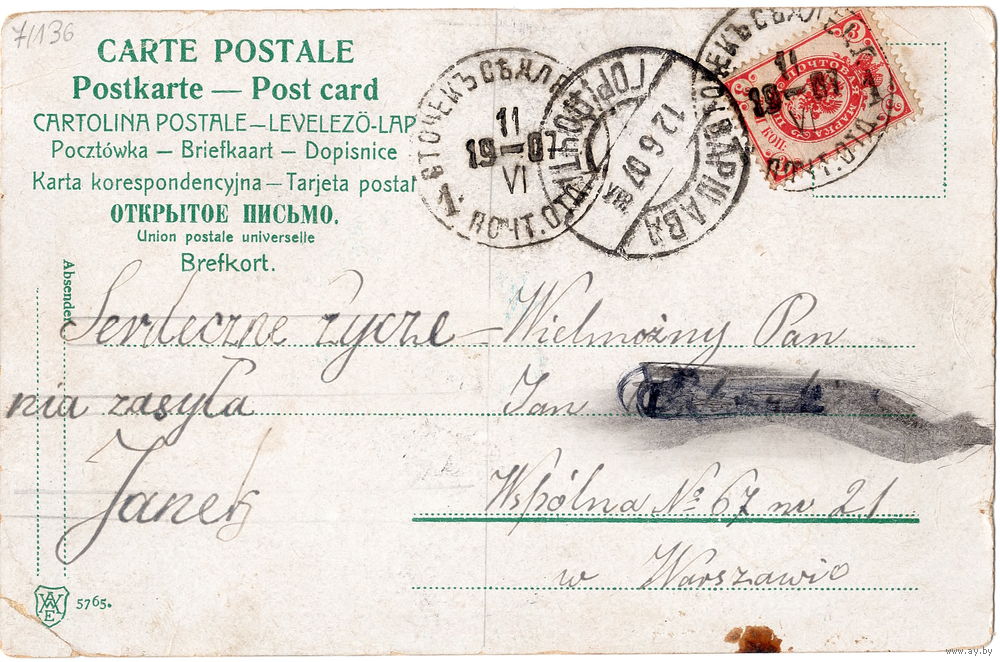 7/136
CARTE POSTALE
Postkarte — Post card
CARTOLINA POSTALE — LEVELEZÖ-LAP
Pocztówka — Briefkaart — Dopisnice
Karta korespondencyjna — Tarjeta postal
ОТКРЫТОЕ ПИСЬМО.
Union postale universelle
Brefkort.
11
19–07
VI
ПОЧТ. ОТД.
12 6 07
ВАРШАВА
11
19–07
VI
3
ПОЧТОВАЯ МАРКА
КОП.
Absender
Serdeczne życze–
nia zasyła
Janek
Wielmożny Pan
Jan
Wspólna № 67 m 21
w Warszawie
5765.
www.ay.by